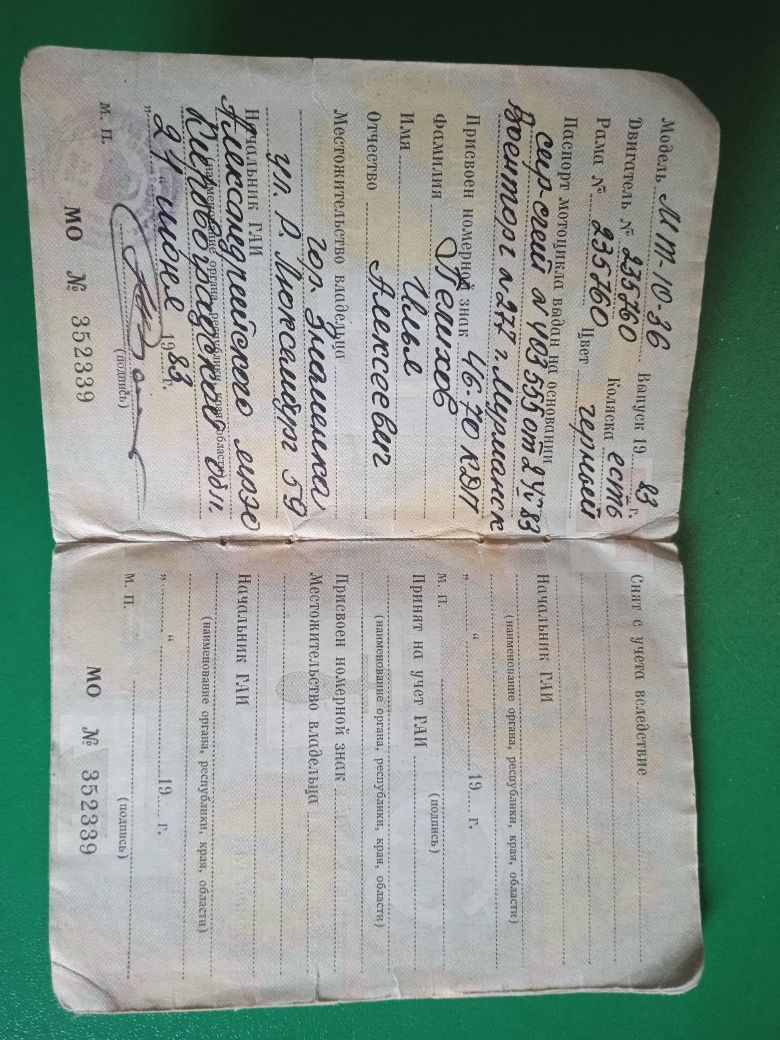 Модель МТ-10-36 Выпуск 1983 г.
Двигатель № 235760 Коляска есть
Рама № 235760 Цвет черный
Паспорт мотоцикла выдан на основании
спр-счет № 403555 от 24 83
Военторг № 277 г. Мурманск
Присвоен номерной знак 46-70 КДП
Фамилия Пешков
Имя Илья
Отчество Алексеевич
Местожительство владельца
гор. Знаменка
ул. Р. Люксембург 59
Начальник ГАИ
Александрийского мрэо
Кировоградской обл.
(наименование органа, республики, края, области)
„24“ июня 1983 г.
М. П.
(подпись)
МО № 352339
Снят с учета вследствие
Начальник ГАИ
(наименование органа, республики, края, области)
„ “ 19 г.
М. П.
(подпись)
Принят на учет ГАИ
(наименование органа, республики, края, области)
Присвоен номерной знак
Местожительство владельца
Начальник ГАИ
(наименование органа, республики, края, области)
„ “ 19 г.
М. П.
(подпись)
МО № 352339